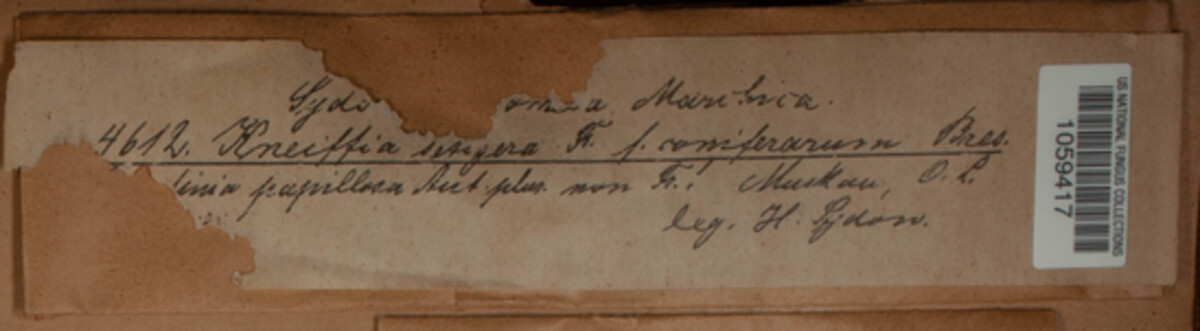 Sydo Marchica.
4612. Kneiffia setigera Fr. f. coniferarum Bres.
papillosa Aut. plur. non Fr.! Muskau, O. L.
leg. H. Sydow.
US NATIONAL FUNGUS COLLECTIONS
1059417